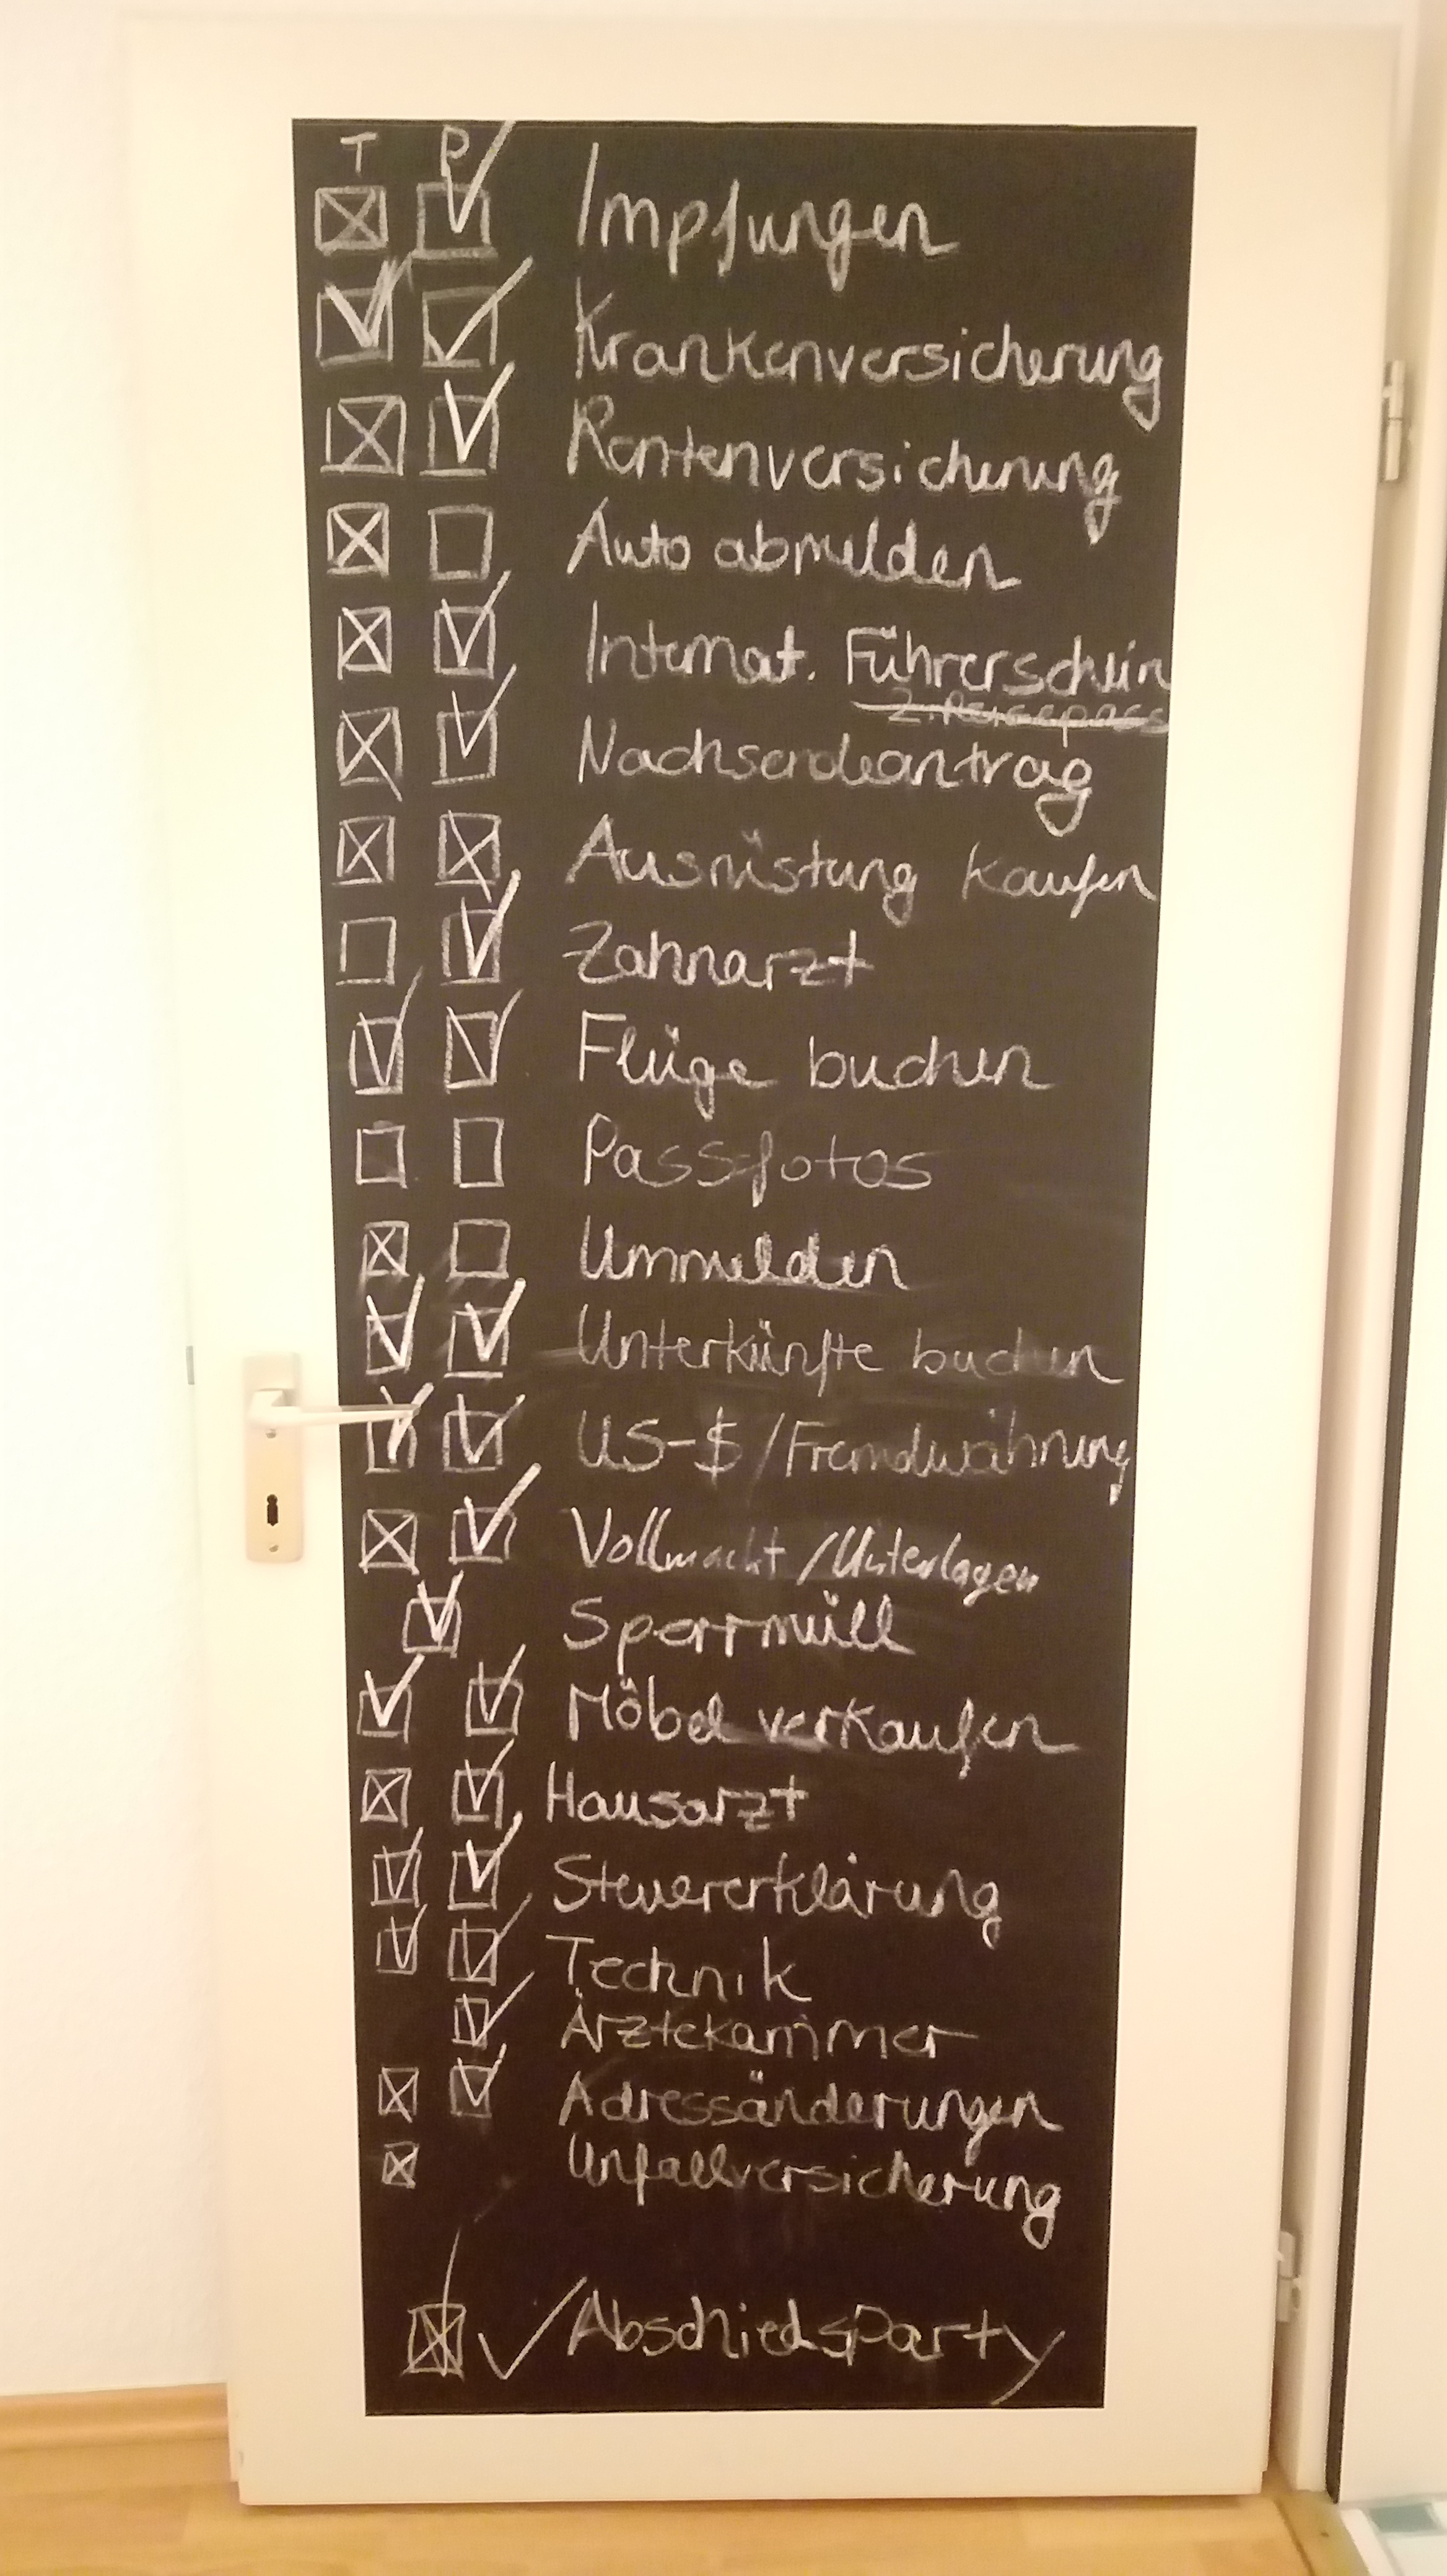 T P
Impfungen
Krankenversicherung
Rentenversicherung
Auto abmelden
Internat. Führerschein
2. Reisepass
Nachsendeantrag
Ausrüstung kaufen
Zahnarzt
Flüge buchen
Passfotos
Ummelden
Unterkünfte buchen
US-$/Fremdwährung
Vollmacht/Unterlagen
Sperrmüll
Möbel verkaufen
Hausarzt
Steuererklärung
Technik
Ärztekammer
Adressänderungen
Unfallversicherung
Abschiedsparty